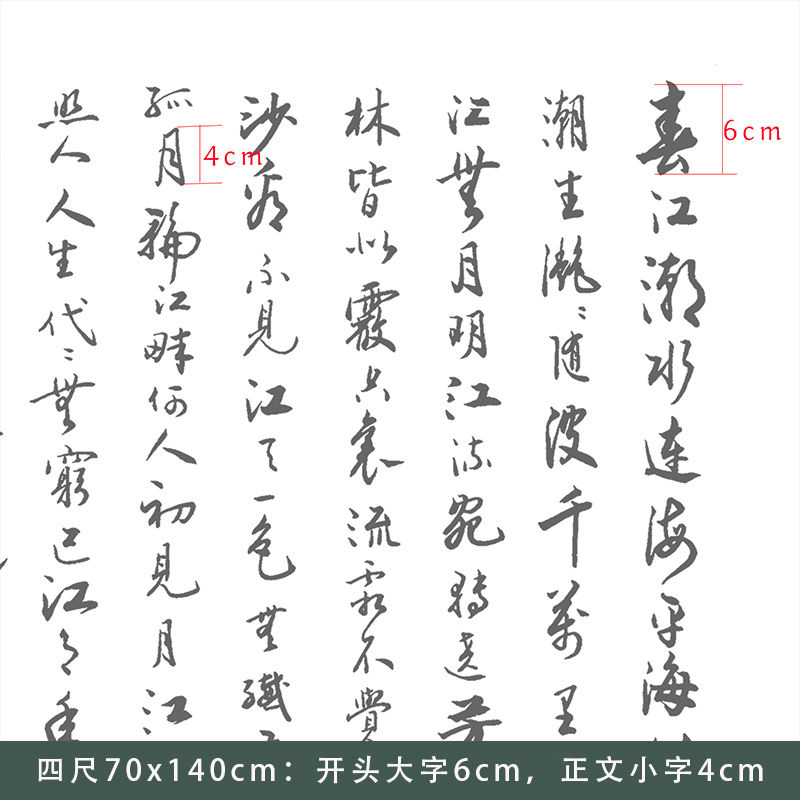 春江潮水連海平海
潮生灔〻随波千萬里
江無月明江流宛轉遶芳
林皆似霰空裏流霜不覺
沙看不見江天一色無纖
孤月輪江畔何人初見月江
照人人生代〻無窮已江月年
6cm
4cm
四尺70x140cm：开头大字6cm，正文小字4cm